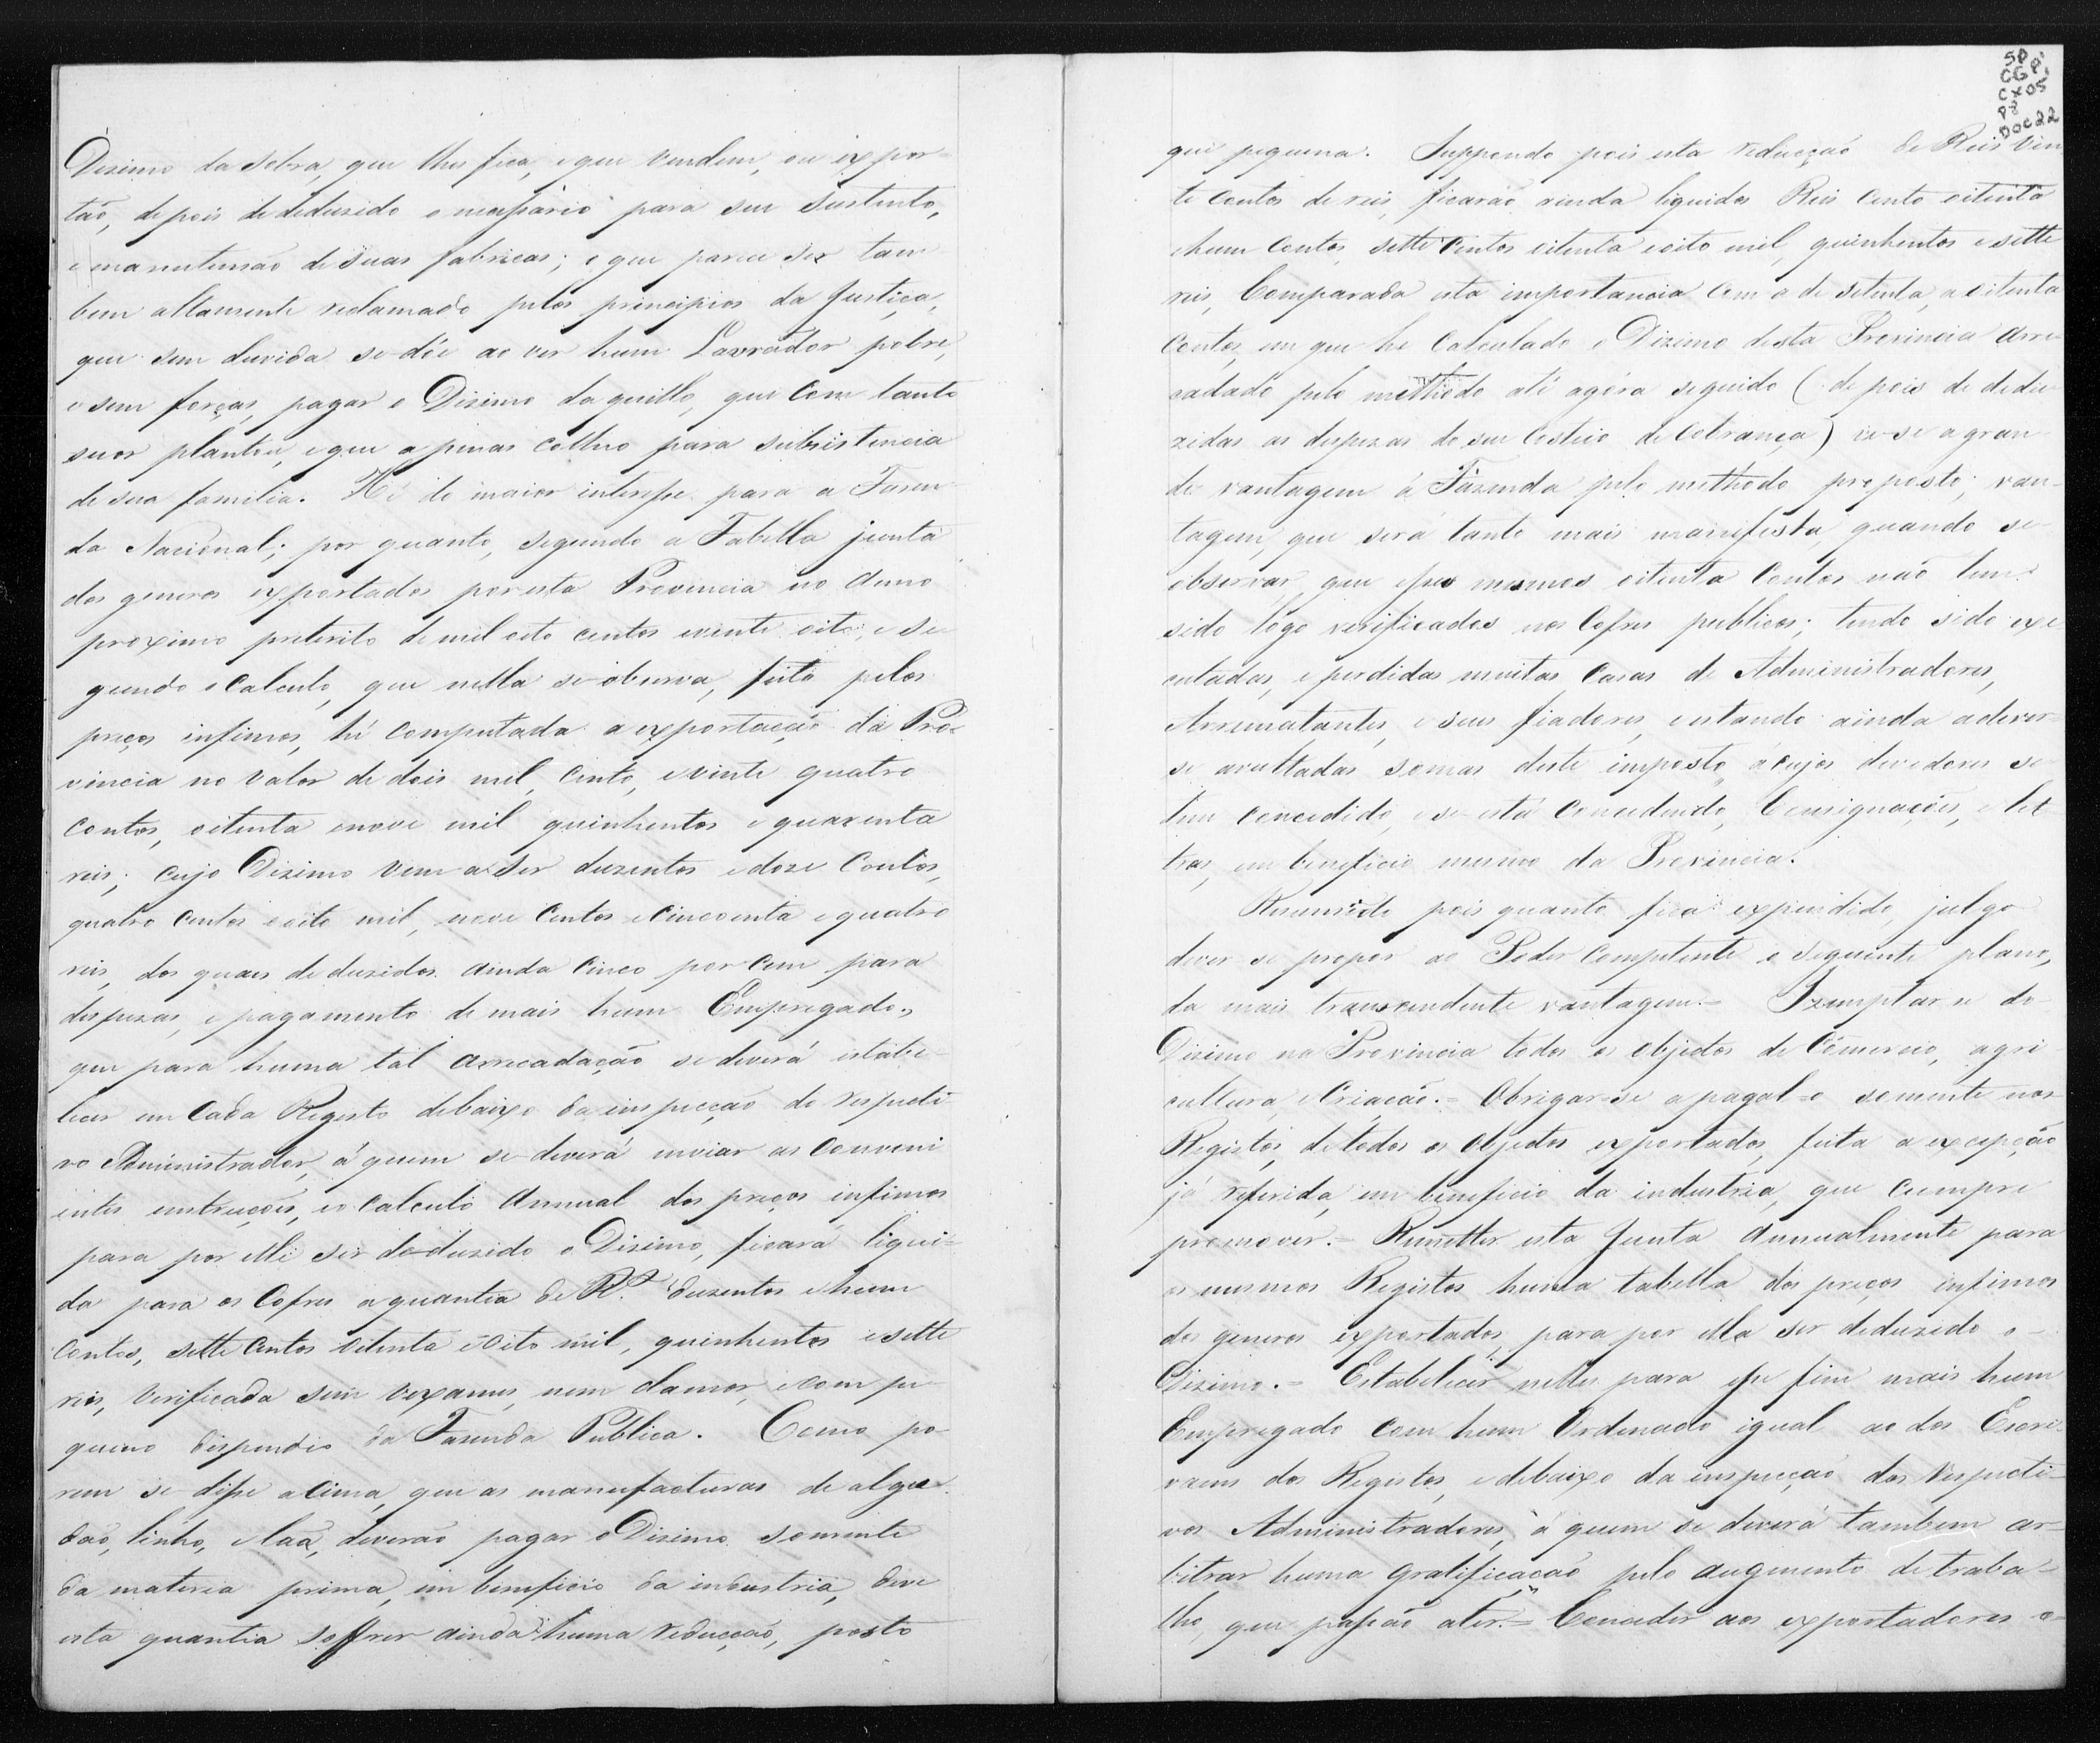 Dizimo da sobra, que lhes fica, e que vendem, ou expor=
tão, depois de deduzido o necessario para seu sustento,
e manutensão de suas fabricas; e que parece ser tam
bem altamente reclamado pelos principios da Justiça,
que sem duvida se dóe ao ver hum Lavrador pobre,
e sem forças, pagar o Dizimo daquillo, que com tanto
suor plantou, e que apenas colheo para subsistencia
de sua familia. He de maior interesse para a Fazen
da Nacional; por quanto, segundo a Tabella junta
dos generos exportados por esta Provincia no anno
proximo preterito de mil oito centos e vinte oito, e se
gundo o Calculo, que nella se observa, feito pelos
preços infimos, hé computada a exportação da Pro
vincia no valor de dois mil, cento, e vinte quatro
contos, oitenta e nove mil quinhentos e quarenta
reis; cujo Dizimo vem a ser duzentos e doze Contos,
quatro centos e oito mil, nove centos e cincoenta e quatro
reis, dos quaes deduzidos ainda cinco por cem para
despezas, e pagamento de mais hum Empregado,
que para huma tal arrecadação se deverá estabe
lecer em Cada Registo debaixo da inspecção do respecti
vo Administrador, á quem se deverá enviar as conveni
entes instruções, e o calculo annual dos preços infimos
para por elle ser deduzido o Dizimo, ficará liqui=
da para os Cofres a quantia de R.s duzentos e hum
contos, sette centos oitenta e oito mil, quinhentos e sette
reis, verificada sem vexames, nem clamor, e com pe
queno dispendio da Fazenda Publica. Como po-
rem se disse acima, que as manufacturas de algo
dão, linho, e laã, deverão pagar o Dizimo somente
da materia prima, em beneficio da industria, deve
esta quantia soffrer ainda huma reducção, posto
SP
CGP1
CX05
P2
DOC22
que pequena. Suppondo pois esta reducção de Reis vin
te contos de reis, ficarão ainda liquidos Reis cento oitenta
e hum contos, sette centos oitenta e oito mil, quinhentos e sette
reis, Comparada esta importancia com a de setenta, a oitenta
contos, em que he calculado o Dizimo desta Provincia arre
cadado pelo methodo até agora seguido (depois de dedu
zidas as despezas do seu custeio de cobrança) ve-se a gran
de vantagem á Fazenda pelo methodo proposto; van-
tagem, que será tanto mais manifesta, quando se
observar, que esses mesmos oitenta contos não tem
sido logo verificados nos Cofres publicos; tendo sido exe
cutadas, e perdidas muitas casas de Administradores,
Arrematantes, e seus fiadores, e estando ainda a dever-
se avultadas somas deste imposto, á cujos devedores se
tem concedido, e se está concedendo, Consignações, e let
tras, em beneficio mesmo da Provincia.
Resumido pois quanto fica expendido, julgo
dever se propor ao Poder competente o seguinte plano,
da mais transcendente vantagem.= Izemptar-se do
Dizimo na Provincia todos os objectos de Cómercio, agri
cultura, e Criação.= Obrigar-se a pagal-o somente nos
Registos, de todos os objectos exportados, feita a excepção
já referida, em beneficio da industria, que cumpre
promover.= Remetter esta Junta annualmente para
os mesmos Registos huma tabella dos preços infimos
dos generos exportados, para por ella ser deduzido o
Dizimo.= Estabelecer nelles para esse fim mais hum
Empregado com hum Ordenado igual ao dos Escri
vaens dos Registos, e debaixo da inspecção dos respecti=
vos Administradores, á quem se deverá tambem ar-
bitrar huma gratificação pelo augmento de traba-
lho, que passão a ter.= Conceder aos exportadores o